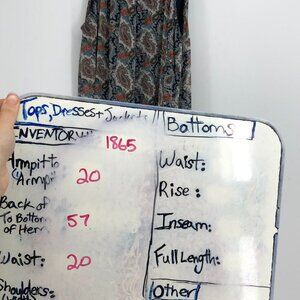 Tops, Dresses + Jackets
INVENTORY # 1865
Armpit to
Armpit 20
Back of
To Bottom 57
of Hem
Waist: 20
Shoulders:
Bottoms
Waist:
Rise:
Inseam:
Full Length:
Other